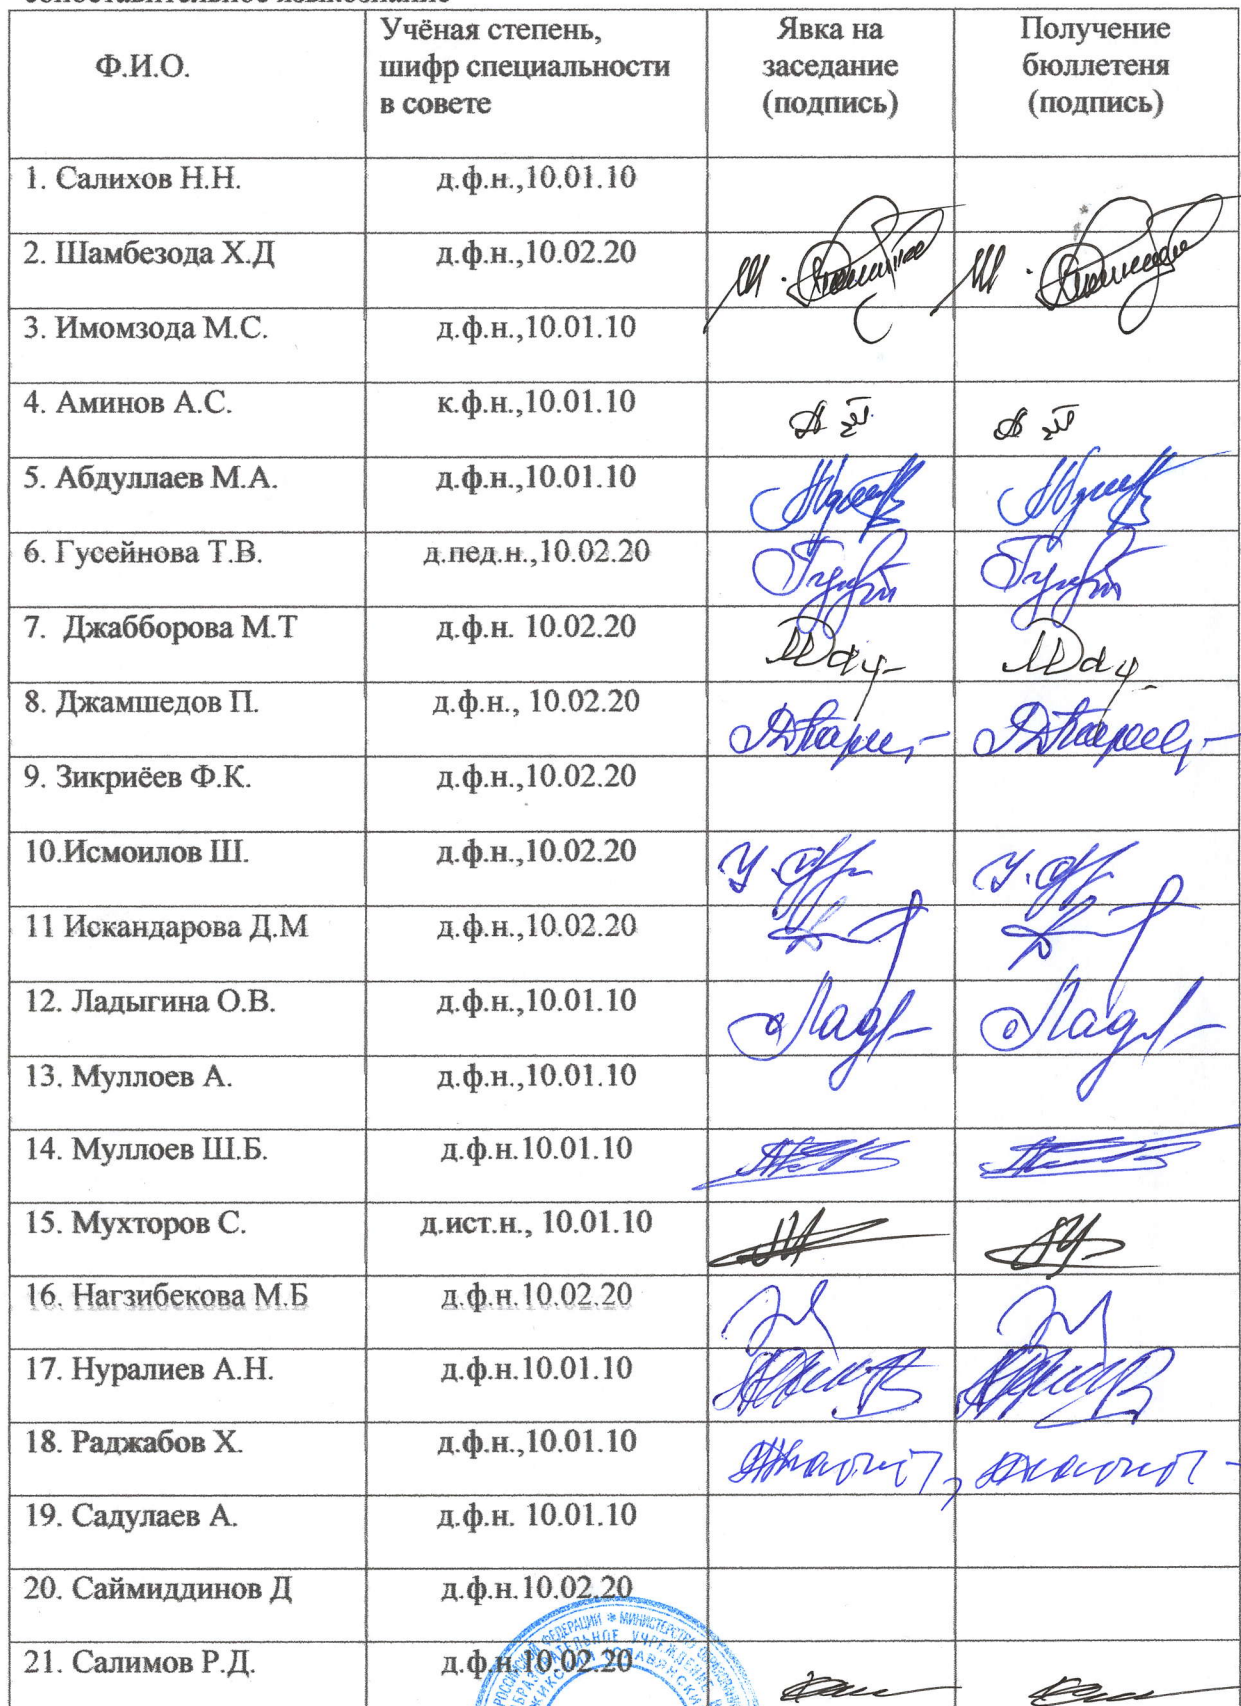 сопоставительное языкознание
Ф.И.О.
Учёная степень,
шифр специальности
в совете
Явка на
заседание
(подпись)
Получение
бюллетеня
(подпись)
1. Салихов Н.Н. д.ф.н.,10.01.10
2. Шамбезода Х.Д д.ф.н.,10.02.20
3. Имомзода М.С. д.ф.н.,10.01.10
4. Аминов А.С. к.ф.н.,10.01.10
5. Абдуллаев М.А. д.ф.н.,10.01.10
6. Гусейнова Т.В. д.пед.н.,10.02.20
7. Джабборова М.Т д.ф.н. 10.02.20
8. Джамшедов П. д.ф.н., 10.02.20
9. Зикриёев Ф.К. д.ф.н.,10.02.20
10.Исмоилов Ш. д.ф.н.,10.02.20
11 Искандарова Д.М д.ф.н.,10.02.20
12. Ладыгина О.В. д.ф.н.,10.01.10
13. Муллоев А. д.ф.н.,10.01.10
14. Муллоев Ш.Б. д.ф.н.10.01.10
15. Мухторов С. д.ист.н., 10.01.10
16. Нагзибекова М.Б д.ф.н.10.02.20
17. Нуралиев А.Н. д.ф.н.10.01.10
18. Раджабов Х. д.ф.н.,10.01.10
19. Садулаев А. д.ф.н. 10.01.10
20. Саймиддинов Д д.ф.н.10.02.20
21. Салимов Р.Д. д.ф.н.10.02.20